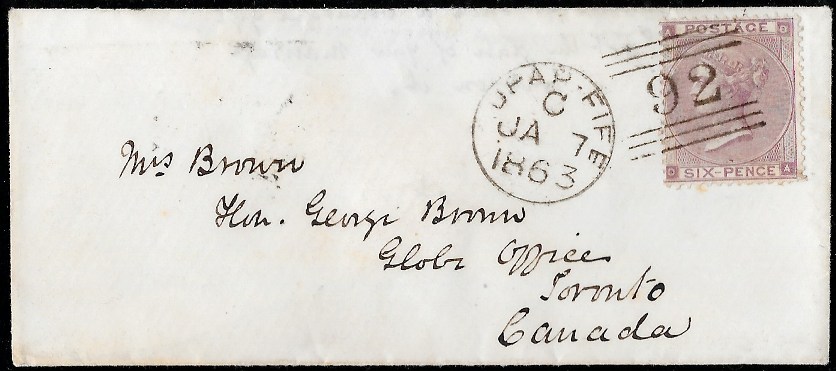 POSTAGE
A D
92
D A
SIX-PENCE
FIFE
C
JA 7
1863
Mrs Brown
Hon. George Brown
Globe Office
Toronto
Canada